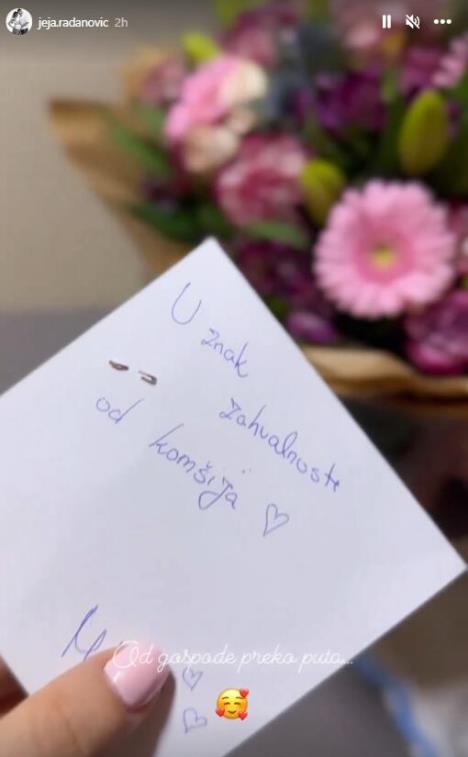 jeja.radanovic 2h
U znak
zahvalnosti
od komšija ♡
Od gospode preko puta...